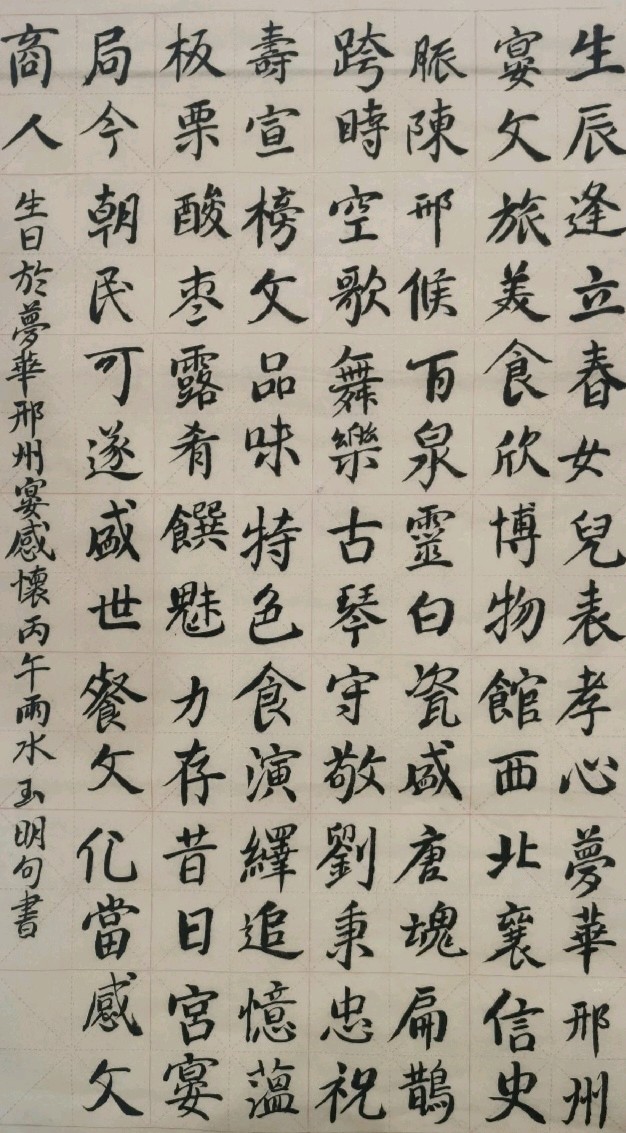 生辰逢立春女兒表孝心夢華邢州
宴文旅美食欣博物館西北襄信史
脈陳邢候百泉靈白瓷盛唐塊扁鵲
跨時空歌舞樂古琴守敬劉秉忠祝
壽宣榜文品味特色食演繹追憶蕰
板栗酸枣露肴饌魅力存昔日宮宴
局今朝民可遂盛世餐文化當感文
商人
生日於夢華邢州宴感懷丙午雨水玉明句書